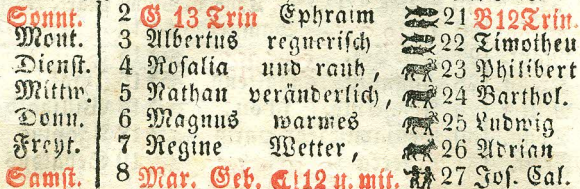 Sonnt. 2 G 13 Trin Ephraim 21 B12Trin.
Mont. 3 Albertus regnerisch 22 Timotheu
Dienst. 4 Rosalia und rauh, 23 Philibert
Mittw. 5 Nathan veränderlich, 24 Barthol.
Donn. 6 Magnus warmes 25 Ludwig
Freyt. 7 Regine Wetter, 26 Adrian
Samst. 8 Mar. Geb. 12 u. mit. 27 Jos. Cal.